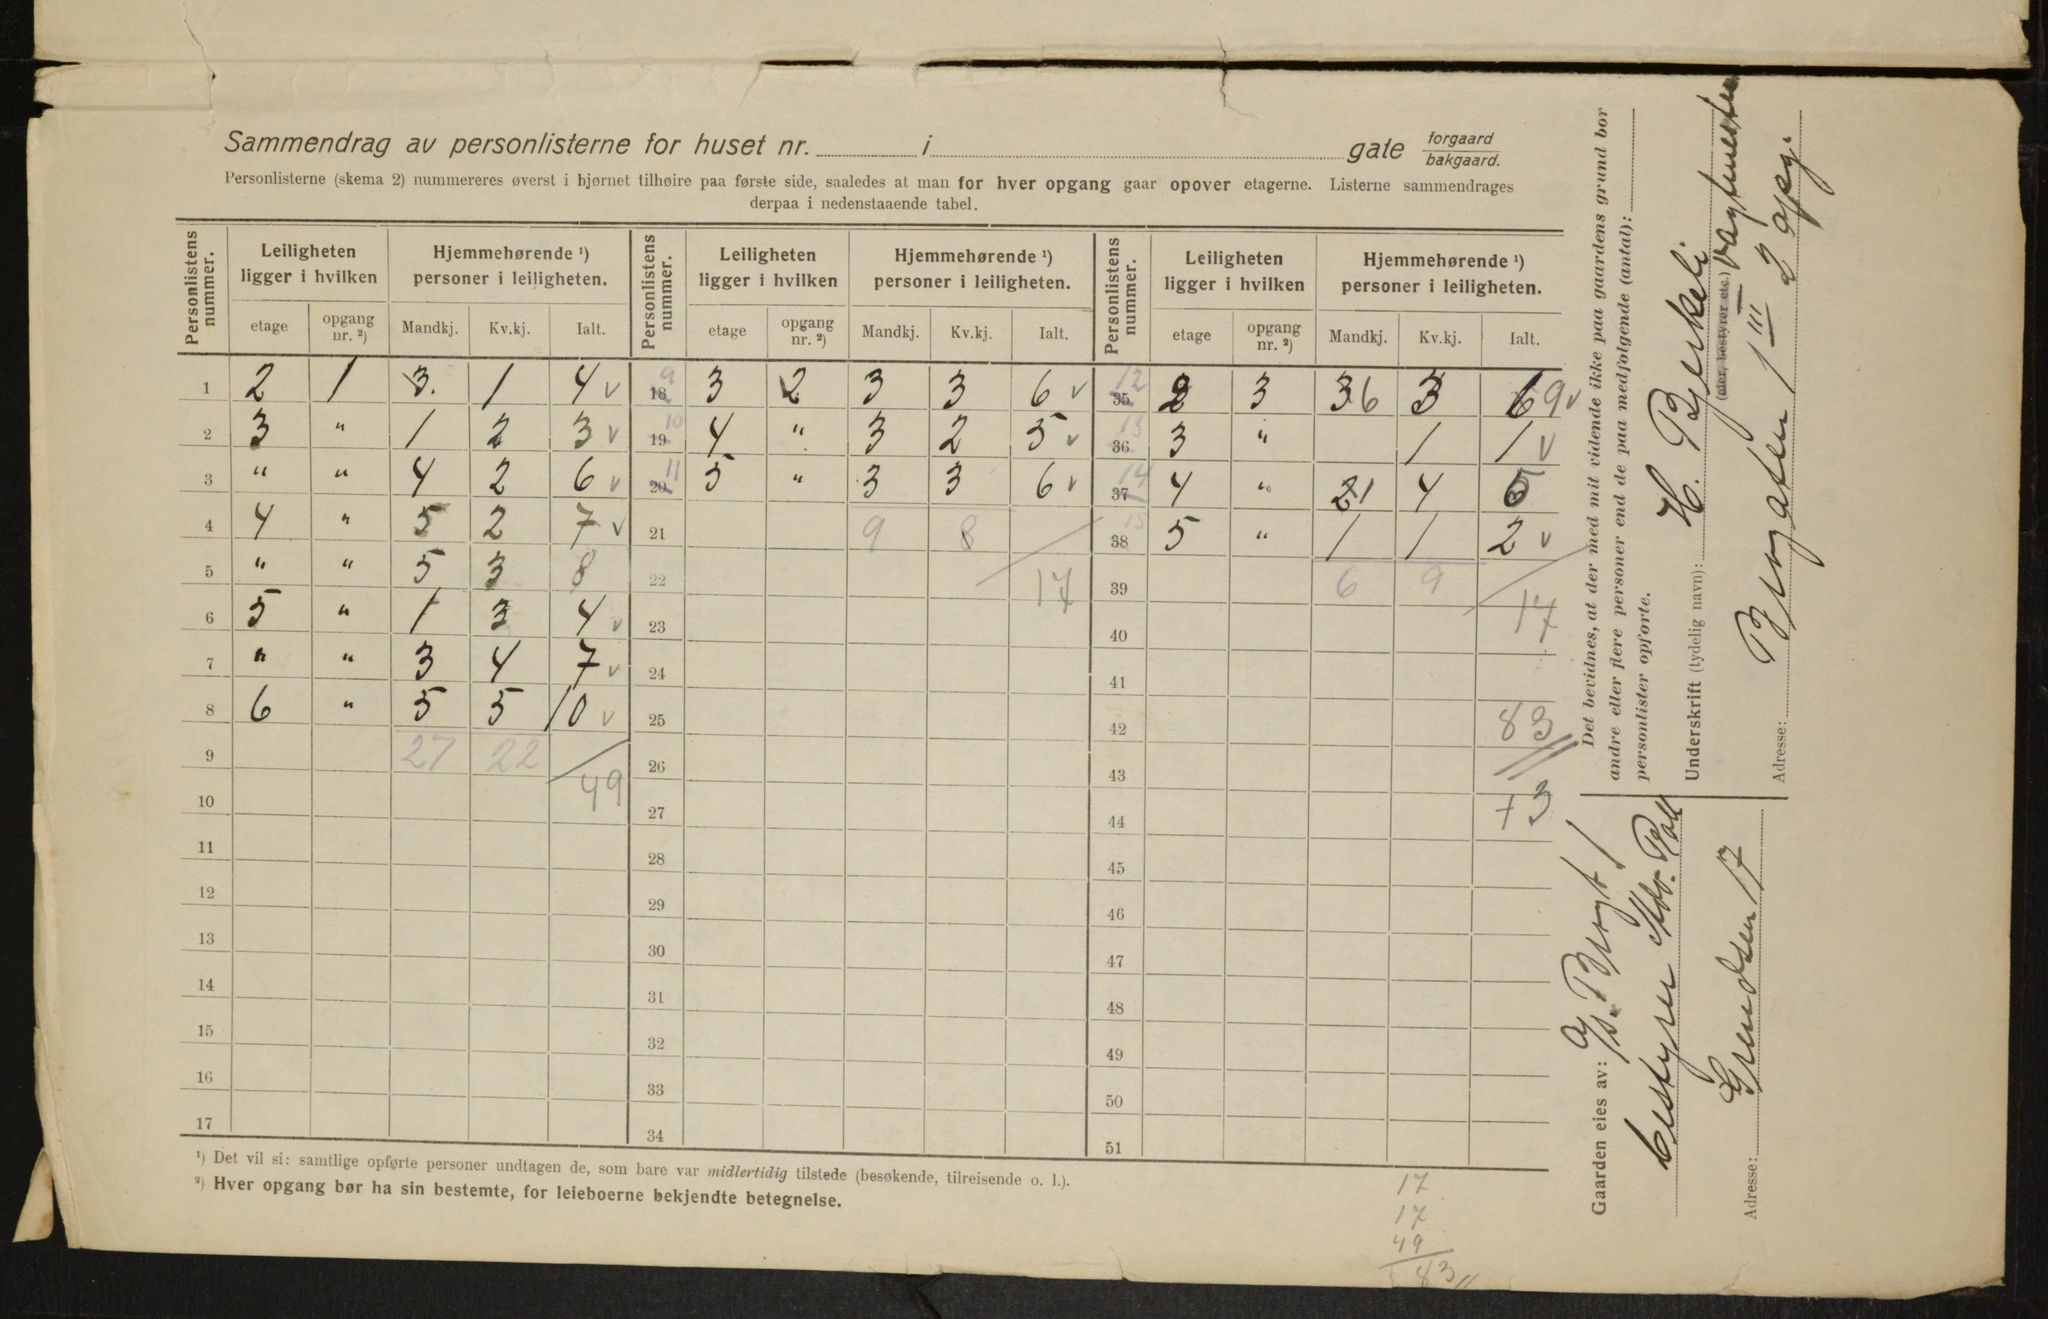 Sammendrag av personlisterne for huset nr. i gate forgaard bakgaard.
Personlisterne (skema 2) nummereres øverst i hjørnet tilhøire paa første side, saaledes at man for hver opgang gaar opover etagerne. Listerne sammendrages
derpaa i nedenstaaende tabel.
Personlistens nummer. Leiligheten ligger i hvilken Hjemmehørende ¹) personer i leiligheten. Personlistens nummer. Leiligheten ligger i hvilken Hjemmehørende ¹) personer i leiligheten. Personlistens nummer. Leiligheten ligger i hvilken Hjemmehørende ¹) personer i leiligheten.
etage opgang nr. ²) Mandkj. Kv.kj. Ialt. etage opgang nr. ²) Mandkj. Kv.kj. Ialt. etage opgang nr. ²) Mandkj. Kv.kj. Ialt.
1 2 1 3 1 4 v 18 9 3 2 3 3 6 v 35 12 2 3 3 6 3 6 9 v
2 3 " 1 2 3 v 19 10 4 " 3 2 5 v 36 13 3 " 1 1 v
3 " " 4 2 6 v 20 11 5 " 3 3 6 v 37 14 4 " 2 1 4 5
4 4 " 5 2 7 v 21 9 8 38 15 5 " 1 1 2 v
5 " " 5 3 8 22 17 39 6 9 17
6 5 " 1 3 4 v 23 40
7 " " 3 4 7 v 24 41
8 6 " 5 5 10 v 25 42 83
9 27 22 49 26 43
10 27 44 +3
11 28 45
12 29 46
13 30 47
14 31 48
15 32 49
16 33 50
17 34 51
¹) Det vil si: samtlige opførte personer undtagen de, som bare var midlertidig tilstede (besøkende, tilreisende o. l.).
²) Hver opgang bør ha sin bestemte, for leieboerne bekjendte betegnelse.
17
17
49
83
Det bevidnes, at der med mit vidende ikke paa gaardens grund bor
andre eller flere personer end de paa medfølgende (antal):
personlister opførte.
Underskrift (tydelig navn): H. Bjerkeli
(eier, bestyrer etc.) vagtmester
Adresse: Brugaten 1 III 2 opg.
Gaarden eies av: A/S. Brugt 1
bestyrer
Adresse: Grændsen 17